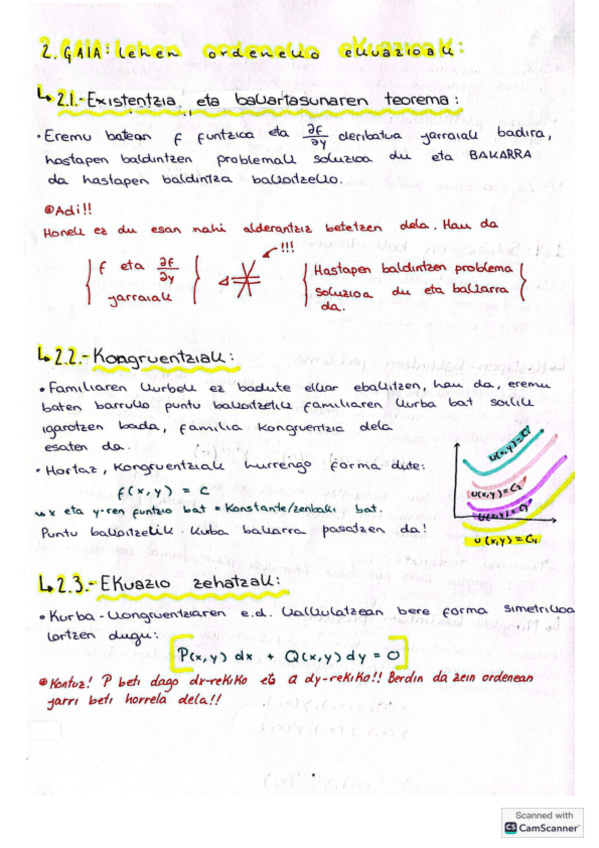 2. GAIA: Lehen ordeneko ekuazioak:
↳ 2.1.- Existentzia eta bakartasunaren teorema:
• Eremu batean f funtzioa eta ∂f/∂y deribatua jarraiak badira,
hastapen baldintzen problemak soluzioa du eta BAKARRA
da hastapen baldintza bakoitzeko.
Adi!!
Honek ez du esan nahi alderantziz betetzen dela. Hau da
!!!
f eta ∂f/∂y
jarraiak
Hastapen baldintzen problema
soluzioa du eta bakarra
da.
↳ 2.2.- Kongruentziak:
• Familiaren kurbek ez badute elkar ebakitzen, hau da, eremu
baten barruko puntu bakoitzetik familiaren kurba bat soilik
igarotzen bada, familia kongruentzia dela
esaten da.
• Hortaz, kongruentziak hurrengo forma dute:
f(x,y) = C
↳ x eta y-ren funtzio bat = Konstante/zenbaki bat.
Puntu bakoitzetik kuba bakarra pasatzen da!
u(x,y)=C1
u(x,y)=C2
u(x,y)=C3
u(x,y)=C4
↳ 2.3.- Ekuazio zehatzak:
• Kurba-kongruentziaren e.d. kalkulatzean bere forma simetrikoa
lortzen dugu:
P(x,y) dx + Q(x,y) dy = 0
Kontuz! P beti dago dx-rekiko eta Q dy-rekiko!! Berdin da zein ordenean
jarri beti horrela dela!!
Scanned with
CS CamScanner